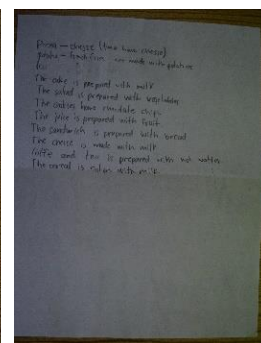 Pizza - cheese (Pizza have cheese)
potato - french fries are made with potatoes
The cake is prepared with milk
The salad is prepared with vegetables
The cookies have chocolate chips
The juice is prepared with fruit
The sandwich is prepared with bread
The cheese is made with milk
Coffee and tea is prepared with hot water
The cereal is eaten with milk